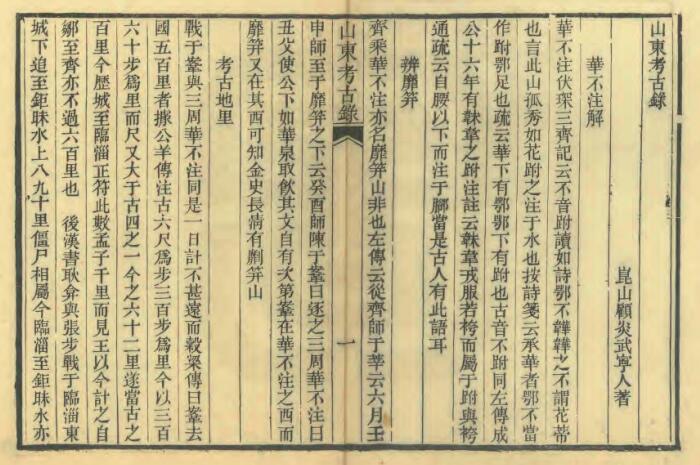 山東考古錄
崑山顧炎武寧人著
華不注解
華不注伏琛三齊記云不音跗讀如詩鄂不韡韡之不謂花蒂
也言此山孤秀如花跗之注于水也按詩箋云承華者鄂不當
作跗鄂足也疏云華下有鄂鄂下有跗也古音不跗同左傳成
公十六年有韎韋之跗注註云韎韋戎服若袴而屬于跗與袴
通疏云自腰以下而注于腳當是古人有此語耳
辨靡笄
齊乘華不注亦名靡笄山非也左傳云從齊師于莘云六月壬
山東考古錄
一
申師至于靡笄之下云癸酉師陳于鞌曰逐之三周華不注曰
丑父使公下如華泉取飲其文自有次第鞌在華不注之西而
靡笄又在其西可知金史長清有劘笄山
考古地里
戰于鞌與三周華不注同是一日計不甚遠而穀梁傳曰鞌去
國五百里者據公羊傳注古六尺爲步三百步爲里今以三百
六十步爲里而尺又大于古四之一今之六十二里遂當古之
百里今歷城至臨淄正符此數孟子千里而見王以今計之自
鄒至齊亦不過六百里也　後漢書耿弇與張步戰于臨淄東
城下追至鉅昧水上八九十里僵尸相屬今臨淄至鉅昧水亦